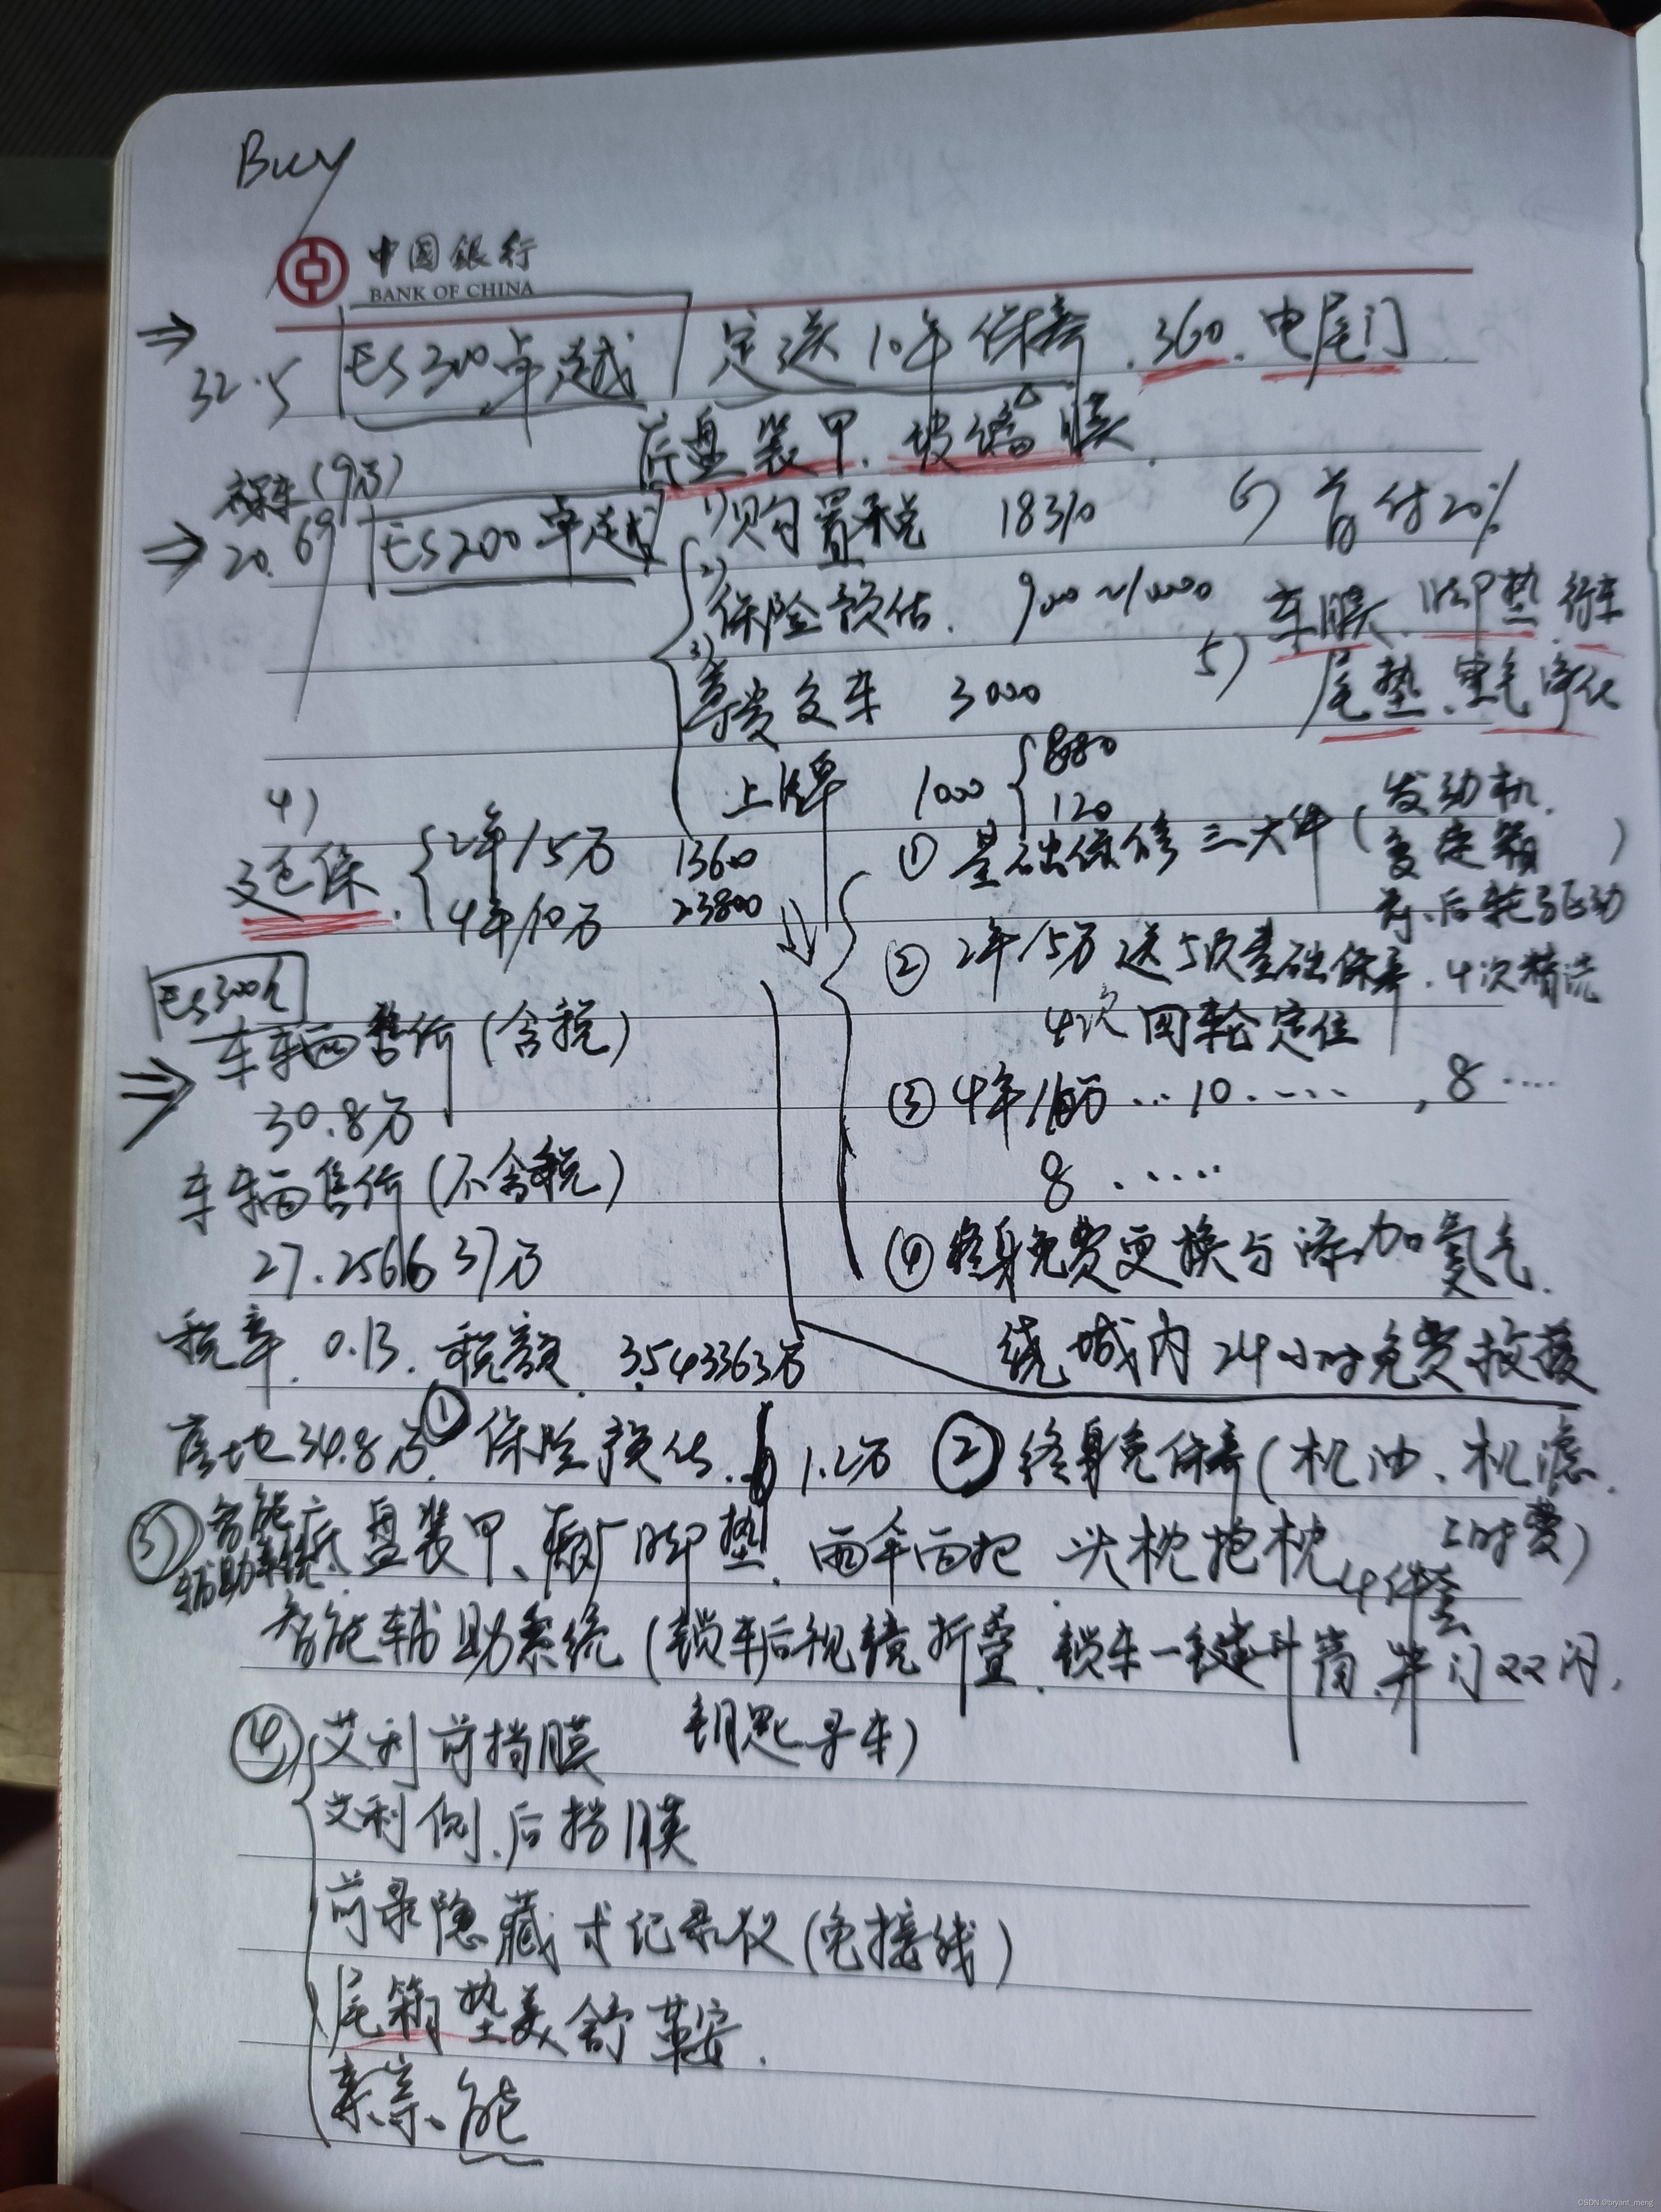 Buy
中国银行
BANK OF CHINA
⇒ 32.5 ES300卓越 定送10年保养、360、电尾门
底盘装甲、玻璃膜、
裸车(9万)
⇒ 20.69 ES200卓越
1)购置税 18310
2)保险预估、9000~10000
3)尊贵交车 3000
上牌 1000 { 880
120
6) 首付20%
5) 车膜、脚垫、行车
尾垫、空气净化
4)
延保、{ 2年/5万 13600
4年/10万 23800
① 基础保修三大件(发动机、
变速箱
前、后轮驱动)
② 2年/5万送5次基础保养、4次精洗
4次四轮定位
③ 4年/10万…10.…, 8….
8.….
④ 终身免费更换与添加氮气
绕城内24小时免费救援
ES300h
⇒ 车辆售价(含税)
30.8万
车辆售价(不含税)
27.256637万
税率、0.13、税额、3.543363万
落地34.8万、① 保险预估、1.2万 ② 终身免保养(机油、机滤、
工时费)
③ 智能辅助系统、底盘装甲、原厂脚垫、雨伞两把 头枕抱枕4件套
智能辅助系统(锁车后视镜折叠、锁车一键升窗、开门双闪、
钥匙寻车)
④ 艾利前挡膜
艾利侧、后挡膜
前录隐藏式记录仪(免接线)
尾箱垫美舒革安、
能
CSDN @bryant_meng